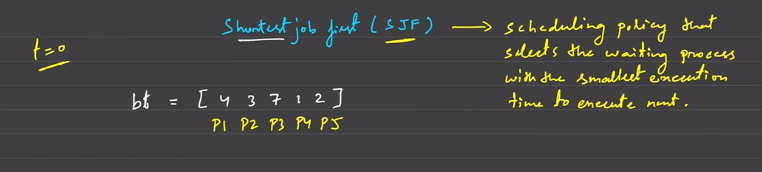 Shortest job first ( SJF ) → scheduling policy that
t = 0
selects the waiting process
with the smallest execution
time to execute next.
bt = [ 4 3 7 1 2 ]
P1 P2 P3 P4 P5